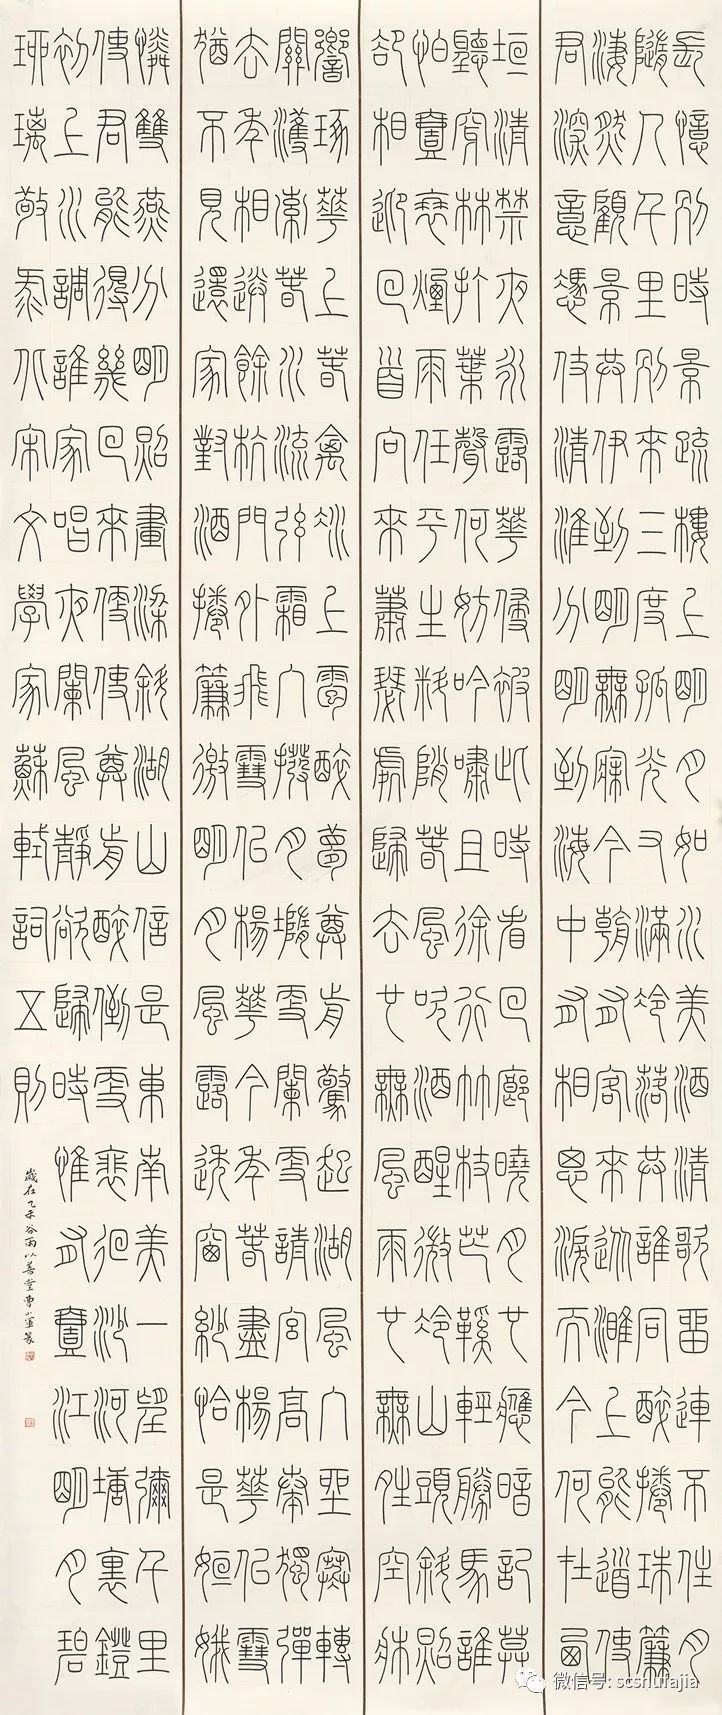 長憶別時景疏樓上明月如水美酒清歌留連不住月
隨人千里別來三度孤光又滿冷落共誰同醉捲珠簾
淒然顧景共伊到明無寐今朝有客來從濉上能道使
君深意憑仗清淮分明到海中有相思淚而今何在西
垣清禁夜永露華侵被此時看回廊曉月也應暗記莫
聽穿林打葉聲何妨吟嘯且徐行竹枝芒鞋輕勝馬誰
怕壹蓑煙雨任平生料峭春風吹酒醒微冷山頭斜照
卻相迎回首向來蕭瑟處歸去也無風雨也無晴空床
響琢華上春禽冰上雹醉夢尊前驚起湖風入坐寒轉
關濩索春水流弦霜入撥月墮更闌更請宮高奏獨彈
去年相送餘杭門外飛雪似楊華今年春盡楊華似雪
猶不見還家對酒捲簾邀明月風露透窗紗恰是姮娥
憐雙燕分明照畫梁斜湖山信是東南美一望彌千里
使君能得幾回來便使尊前醉倒更裴徊沙河塘裏鐙
初上水調誰家唱夜闌風靜欲歸時惟有壹江明月碧
琉璃敬录北宋文學家蘇軾詞五則
歲在乙未谷雨以善堂曹小軍篆
微信号: scshufajia